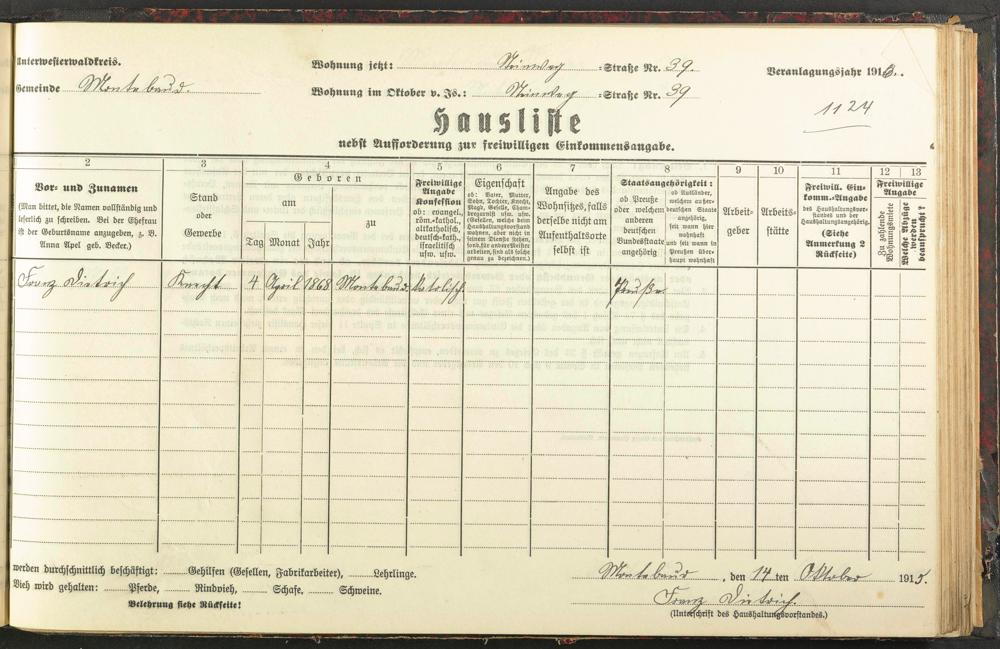 Unterwesterwaldkreis.
Gemeinde Montabaur.
Wohnung jetzt: Steinweg =Straße Nr. 39.
Wohnung im Oktober v. Js.: Steinweg =Straße Nr. 39
Veranlagungsjahr 1916.
1124
Hausliste
nebst Aufforderung zur freiwilligen Einkommensangabe.
2
Vor= und Zunamen
(Man bittet, die Namen vollständig und
leserlich zu schreiben. Bei der Ehefrau
ist der Geburtsname anzugeben, z. B.
Anna Apel geb. Becker.)
3
Stand
oder
Gewerbe
4
Geboren
am
Tag Monat Jahr
zu
5
Freiwillige
Angabe
Konfession
ob: evangel.,
röm.=kathol.,
altkatholisch,
deutsch=kath.,
israelitisch
usw. usw.
6
Eigenschaft
ob: Vater, Mutter,
Sohn, Tochter, Knecht,
Magd, Geselle, Cham=
bregarnist usw. usw.
(Gesellen, welche beim
Haushaltungsvorstand
wohnen, aber nicht in
seinem Dienste stehen,
sond. für andere Meister
arbeiten, sind als solche
genau zu bezeichnen.)
7
Angabe des
Wohnsitzes, falls
derselbe nicht am
Aufenthaltsorte
selbst ist
8
Staatsangehörigkeit:
ob Preuße
oder welchem
anderen
deutschen
Bundesstaate
angehörig
ob Ausländer,
welchem außer=
deutschen Staate
angehörig,
seit wann hier
wohnhaft
und seit wann in
Preußen über=
haupt wohnhaft
9
Arbeit=
geber
10
Arbeits=
stätte
11
Freiwill. Ein=
komm.=Angabe
des Haushaltungsvor=
standes und der
Haushaltungsangehörig.
(Siehe
Anmerkung 2
Rückseite)
12 13
Freiwillige
Angabe
Zu zahlende
Wohnungsmiete
Welche Abzüge
werden
beansprucht?
Franz Dietrich Knecht 4 April 1868 Montabaur. katolisch Preuße
werden durchschnittlich beschäftigt: Gehilfen (Gesellen, Fabrikarbeiter), Lehrlinge.
Vieh wird gehalten: Pferde, Rindvieh, Schafe, Schweine.
Belehrung siehe Rückseite!
Montabaur, den 14 ten Oktober 1915.
Franz Dietrich.
(Unterschrift des Haushaltungsvorstandes.)